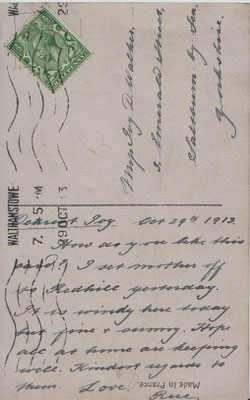 WALTHAMSTOWE
7. 5 M
29 OCT 13
Miss Ivy D Walker,
5, Emerald Street,
Saltburn by Sea,
Yorkshire.
Dearest Ivy Oct 29th 1913.
How do you like this
card? I set mother off
to Redhill yesterday.
It is windy here today
but fine & sunny. Hope
all at home are keeping
well. Kindest regards to
them. Love,
Made in France.